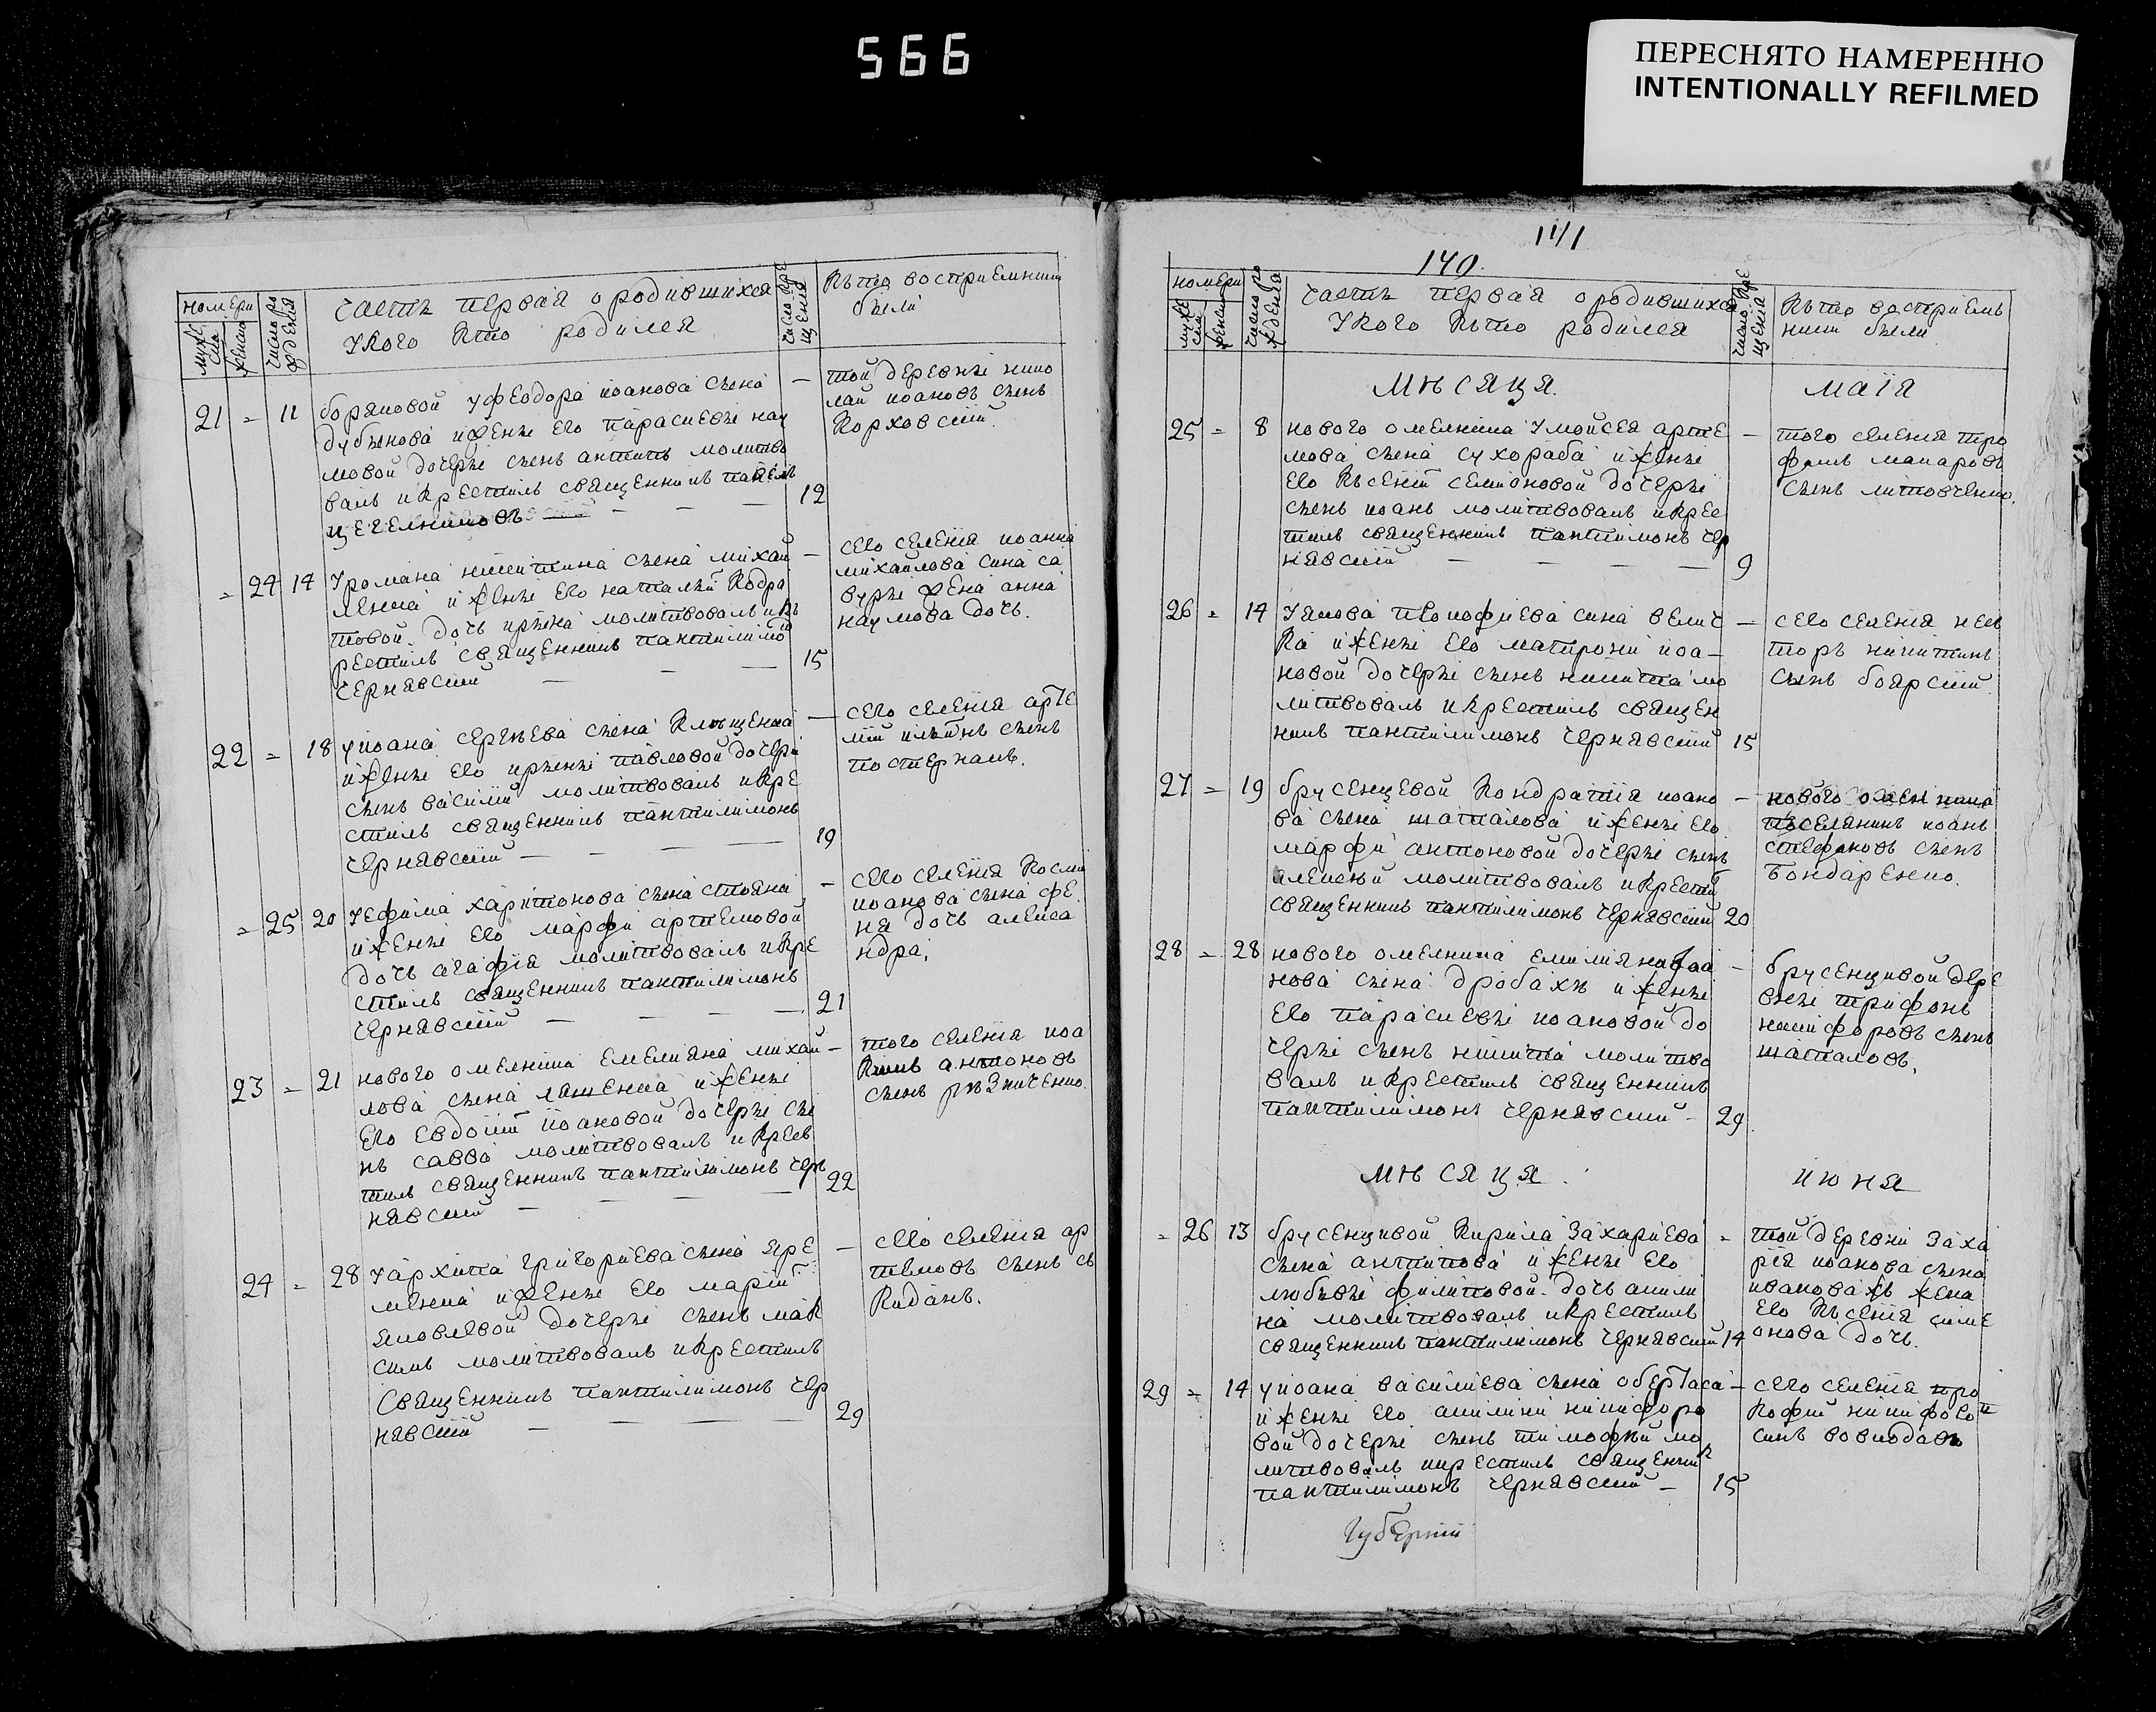 566
ПЕРЕСНЯТО НАМЕРЕННО
INTENTIONALLY REFILMED
номѣри
мужеска
женска
число рождения
часть первая о родившихся
у кого кто родился
число крещения
кто восприемники
были
21 = 11
боряновой у феодора иоанова сына
дубынова и женѣ его парасковѣ нау
мовой дочерѣ сынъ антипъ молитво
валъ и крестилъ священникъ павелъ
цегелниковъ —
12
той деревнѣ нико
лай иоановъ сынъ
корховский.
= 24 14
у романа никитина сына михай
ленка и женѣ его наталѣи кодра
товой дочь ирѣна молитвовалъ и к
рестилъ священникъ пантилимо
чернявский
15
сего селения иоанна
михайлова сина са
вурѣ жена анна
наумова дочь.
22 = 18
у иоана сергѣева сына клищенка
и женѣ его ирѣнѣ павловой дочерѣ
сынъ василий молитвовалъ и кре
стилъ священникъ пантилимонъ
чернявский
19
сего селения арте
мий илиинъ сынъ
постернакъ.
= 25 20
у ефима харитонова сына стояна
и женѣ его марфи артемовой
дочь агафия молитвовалъ и кре
стилъ священникъ пантилимонъ
чернявский
21
сего селения косми
иоанова сына фе
на дочь алекса
ндра.
23 = 21
нового омелника емелияна михай
лова сына ляшенка и женѣ
его евдокии иоановой дочерѣ сы
нъ савва молитвовалъ и крес
тилъ священникъ пантилимонъ чер
нявский
22
того селения иоа
кимъ антоновъ
сынъ рѣзниченко.
24 = 28
у архипа григориева сына яре
менка и женѣ его марии
яковлевой дочерѣ сынъ мак
симъ молитвовалъ и крестилъ
священникъ пантилимонъ чер
нявский
29
сего селения ар
темовъ сынъ с
кидань.
140.
номѣри
мужеска
женски
число рождения
часть первая о родившихся
у кого кто родился
число крещения
кто восприем
ники были
мѣсяця. маїя
25 = 8
нового омелника у мойсея арте
мова сына сухораба и женѣ
его ксении семионовой дочерѣ
сынъ иоанъ молитвовалъ и крес
тилъ священникъ пантимонъ чер
нявский
9
того селения тро
фимъ макаровъ
сынъ литовченко.
26 = 14
у якова прокофиева сина велич
ка и женѣ его матрони иоа-
новой дочерѣ сынъ никита мо
литвовалъ и крестилъ священ
никъ пантилимонъ чернявский
15
сего селения нес
торъ никитинъ
сынъ боярский.
27 = 19
брусенцевой кондратия иоано
ва сына шаталова и женѣ его
марфи антоновой дочерѣ сынъ
алексѣй молитвовалъ и крести
священникъ пантилимонъ чернявский
20
нового омелника
поселянинъ иоанъ
стефановъ сынъ
бондаренко.
28 = 28
нового омелника емилияна иоа
нова сына дробахѣ и женѣ
его парасковѣ иоановой до
черѣ сынъ никита молитво
валъ и крестилъ священникъ
пантилимонъ чернявский
29
брусенцивой дере
внѣ трифонъ
никифоровъ сынъ
шаталовъ.
мѣсяця июня
= 26 13
брусенцивой кирила захариева
сына антипова и женѣ его
любѣвѣ филиповой дочь акили
на молитвовалъ и крестилъ
священникъ пантилимонъ чернявский
14
той деревни заха
рия иоанова сына
иванова жена
его ксения симе
онова дочь.
29 = 14
у иоана василиева сына обертаса
и женѣ его акилини никифоро
вой дочерѣ сынъ тимофѣй мо
литвовалъ и крестилъ священник
пантилимонъ чернявский
15
сего селения про
кофий никифоро
синъ
губернии